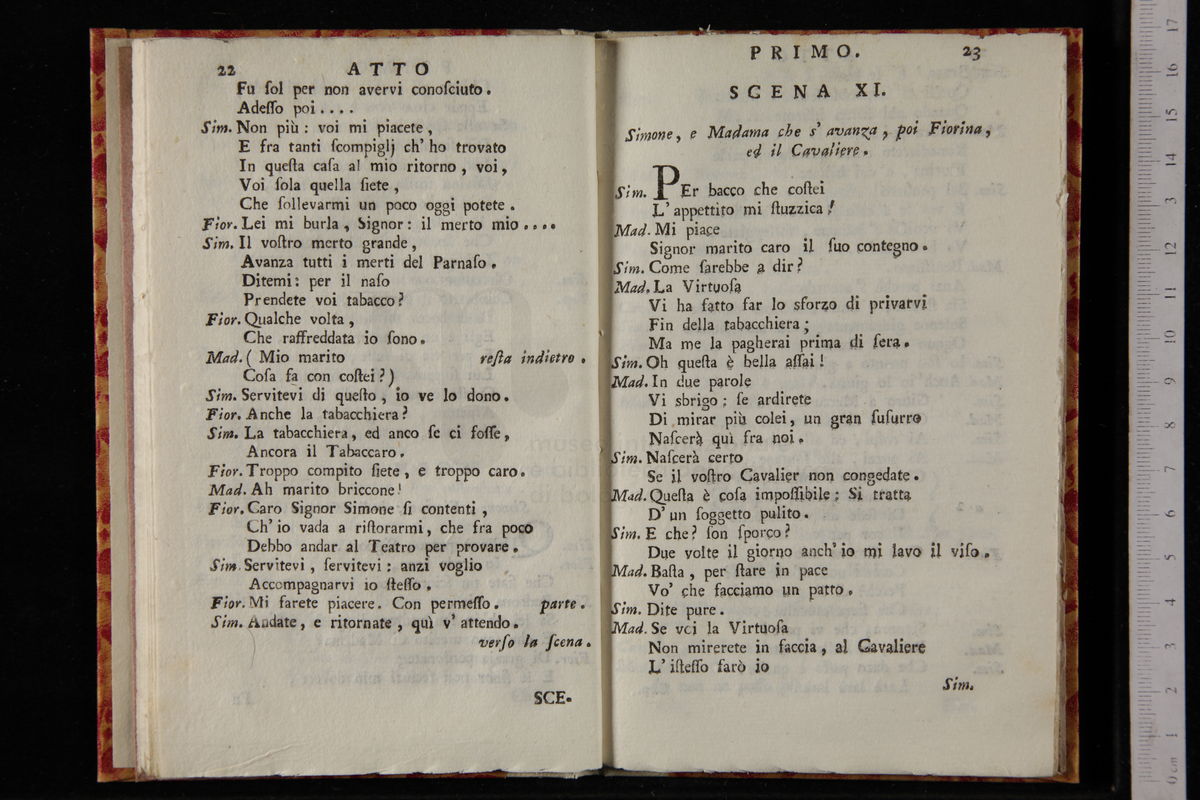 22 ATTO
Fu ſol per non avervi conoſciuto.
Adeſſo poi....
Sim. Non più: voi mi piacete,
E fra tanti ſcompiglj ch' ho trovato
In queſta caſa al mio ritorno, voi,
Voi ſola quella ſiete,
Che ſollevarmi un poco oggi potete.
Fior. Lei mi burla, Signor: il merto mio....
Sim. Il voſtro merto grande,
Avanza tutti i merti del Parnaſo.
Ditemi: per il naſo
Prendete voi tabacco?
Fior. Qualche volta,
Che raffreddata io ſono.
Mad. (Mio marito reſta indietro.
Coſa fa con coſtei?)
Sim. Servitevi di queſto, io ve lo dono.
Fior. Anche la tabacchiera?
Sim. La tabacchiera, ed anco ſe ci foſſe,
Ancora il Tabaccaro.
Fior. Troppo compito ſiete, e troppo caro.
Mad. Ah marito briccone!
Fior. Caro Signor Simone ſi contenti,
Ch' io vada a riſtorarmi, che fra poco
Debbo andar al Teatro per provare.
Sim. Servitevi, ſervitevi: anzi voglio
Accompagnarvi io ſteſſo.
Fior. Mi farete piacere. Con permeſſo. parte.
Sim. Andate, e ritornate, quì v' attendo.
verſo la ſcena.
SCE-
PRIMO. 23
SCENA XI.
Simone, e Madama che s' avanza, poi Fiorina,
ed il Cavaliere.
Sim. PEr bacco che coſtei
L' appettito mi ſtuzzica!
Mad. Mi piace
Signor marito caro il ſuo contegno.
Sim. Come ſarebbe a dir?
Mad. La Virtuoſa
Vi ha fatto far lo sforzo di privarvi
Fin della tabacchiera;
Ma me la pagherai prima di ſera.
Sim. Oh queſta è bella aſſai!
Mad. In due parole
Vi sbrigo; ſe ardirete
Di mirar più colei, un gran ſuſurro
Naſcerà quì fra noi.
Sim. Naſcerà certo
Se il voſtro Cavalier non congedate.
Mad. Queſta è coſa impoſſibile; Si tratta
D' un ſoggetto pulito.
Sim. E che? ſon ſporco?
Due volte il giorno anch' io mi lavo il viſo.
Mad. Baſta, per ſtare in pace
Vo' che facciamo un patto.
Sim. Dite pure.
Mad. Se voi la Virtuoſa
Non mirerete in faccia, al Cavaliere
L' iſteſſo farò io
Sim.